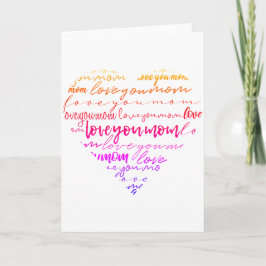 mom ove you mom
mom love you mom
love you mom
love you mom love you mom love
om love you mom lo
m love you m
mom love
e you mo
ove
m